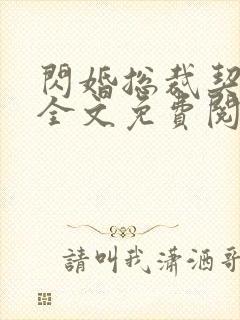 閃婚總裁契
全文免費閱
請叫我瀟洒哥